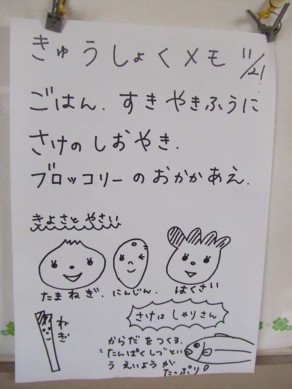 きゅうしょくメモ 11/21
ごはん. すきやきふうに
さけのしおやき.
ブロッコリーのおかかあえ.
きよさとやさい
たまねぎ. にんじん. はくさい
ねぎ
さけは しゃりさん
からだをつくる、
たんぱくしつとい
う えいようが
たっぷり